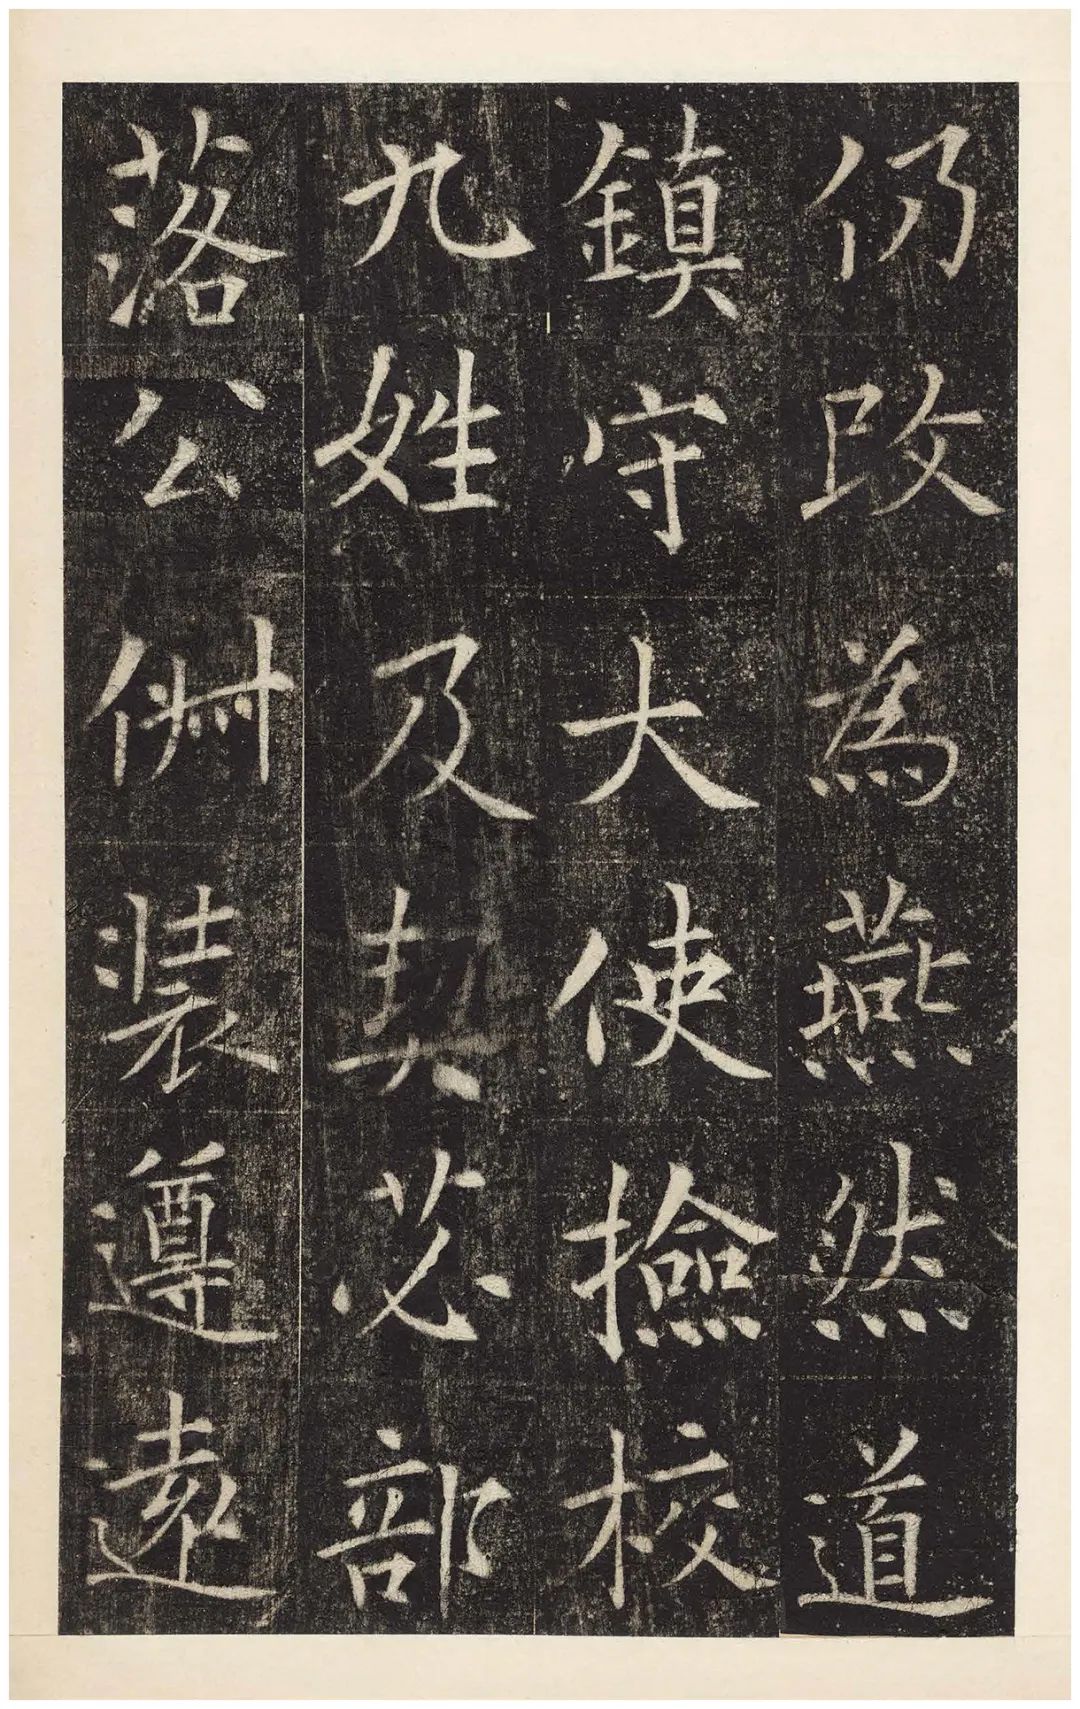 仍改為燕然道
鎮守大使撿校
九姓及契苾部
落公俶裝遵遠